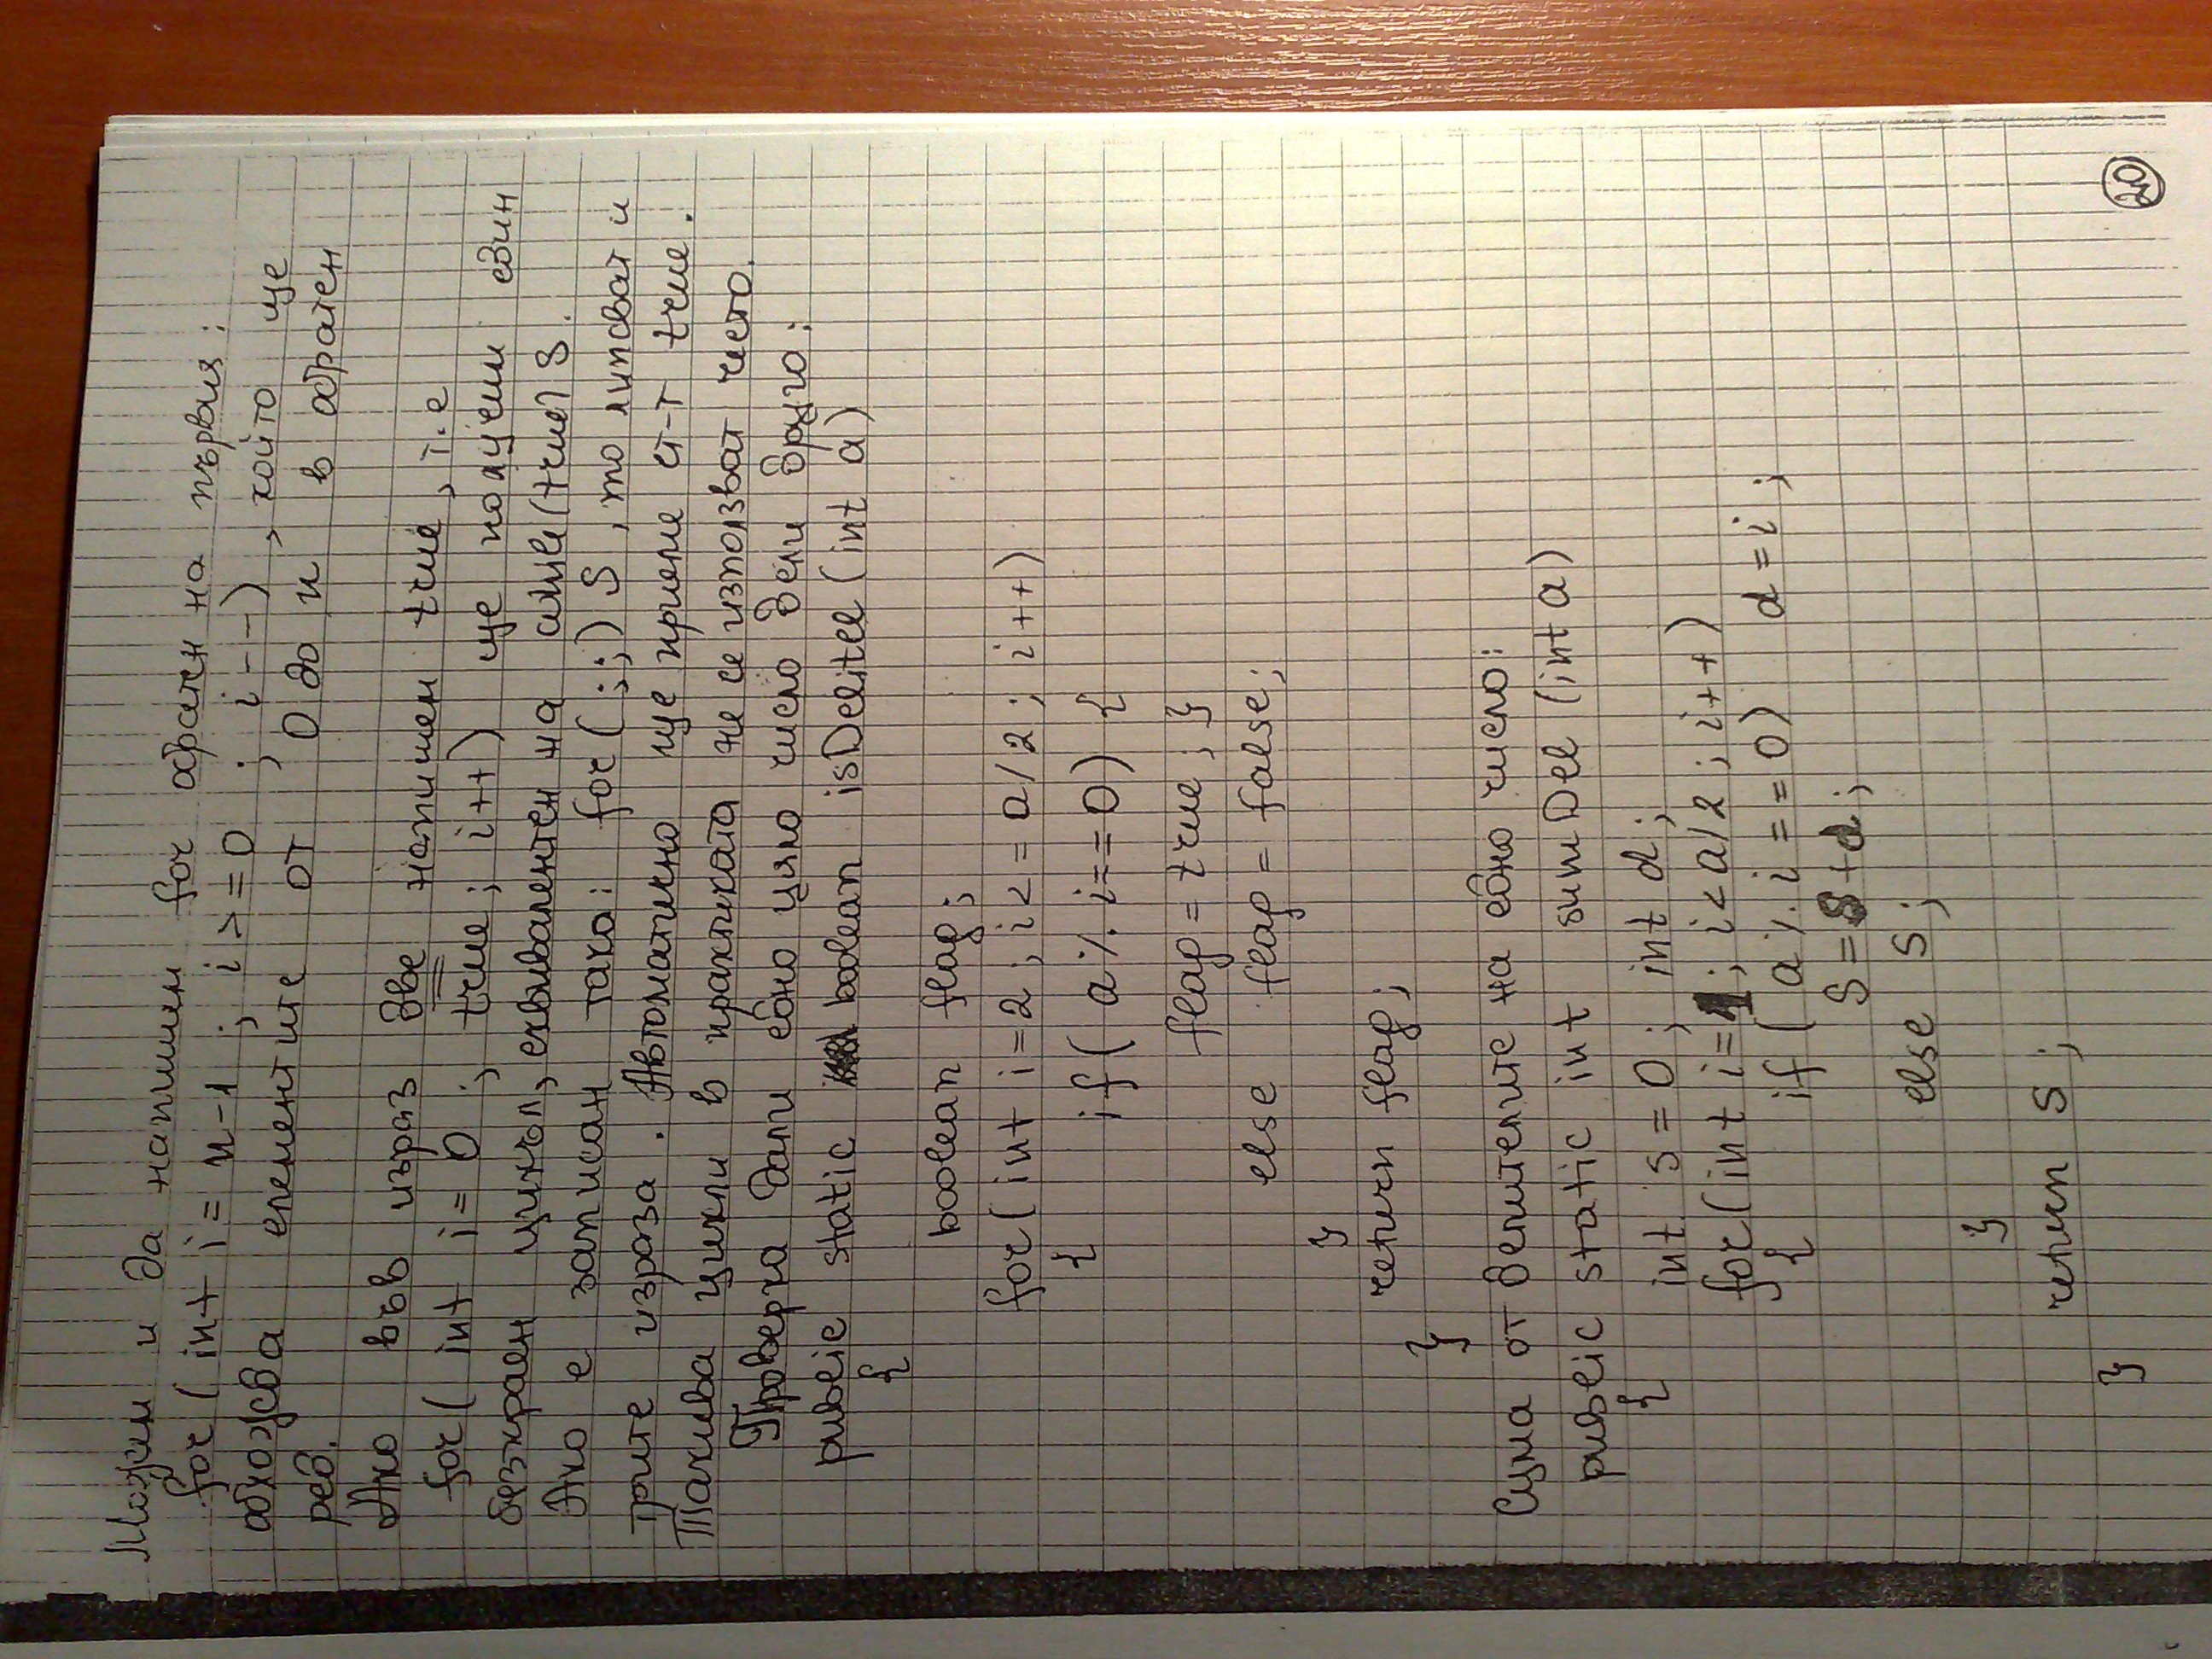 Можем и да напишем for обратен на първия:
for(int i=n-1; i>=0; i--), който ще
обхожда елементите от 0 до n в обратен
ред.
Ако във израз две напишем true, т.е
for(int i=0; true; i++) ще получим един
безкраен цикъл, еквивалентен на while(true) S.
Ако е записан така: for(;;) S, то липсват и
трите израза. Автоматично ще приеме ст-т true.
Такива цикли в практиката не се използват често.
Проверка дали едно цяло число дели друго:
public static boolean isDelitel(int a)
{
boolean flag;
for(int i=2; i<=a/2; i++)
{ if(a%i==0) {
flag=true; }
else flag=false;
}
return flag;
}
Сума от делителите на едно число:
public static int sumDel(int a)
{
int s=0; int d;
for(int i=1; i<a/2; i++)
{ if(a%i==0) d=i;
S=S+d;
else s;
}
return s;
}
20